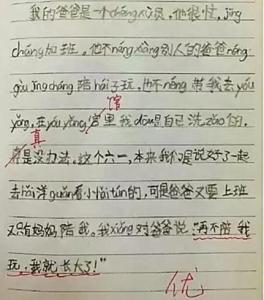 我的爸爸是一个chǎng众员,他很忙,jīng
cháng加班,他不néng xiàng别人的爸爸néng
gòu jīng cháng 陪hái子玩,也不néng带我去yóu
馆
yǒng,在yóu yǒng宫里我dōu是自已洗zǎo的,
真
是没办法。这个六一,本来我们是说好了一起
去hǎi洋guǎn看小hǎi tún的,可是爸爸又要上班
又只有妈妈陪我。我xiǎng对爸爸说:"再不陪我
玩,我就长大了!"
优